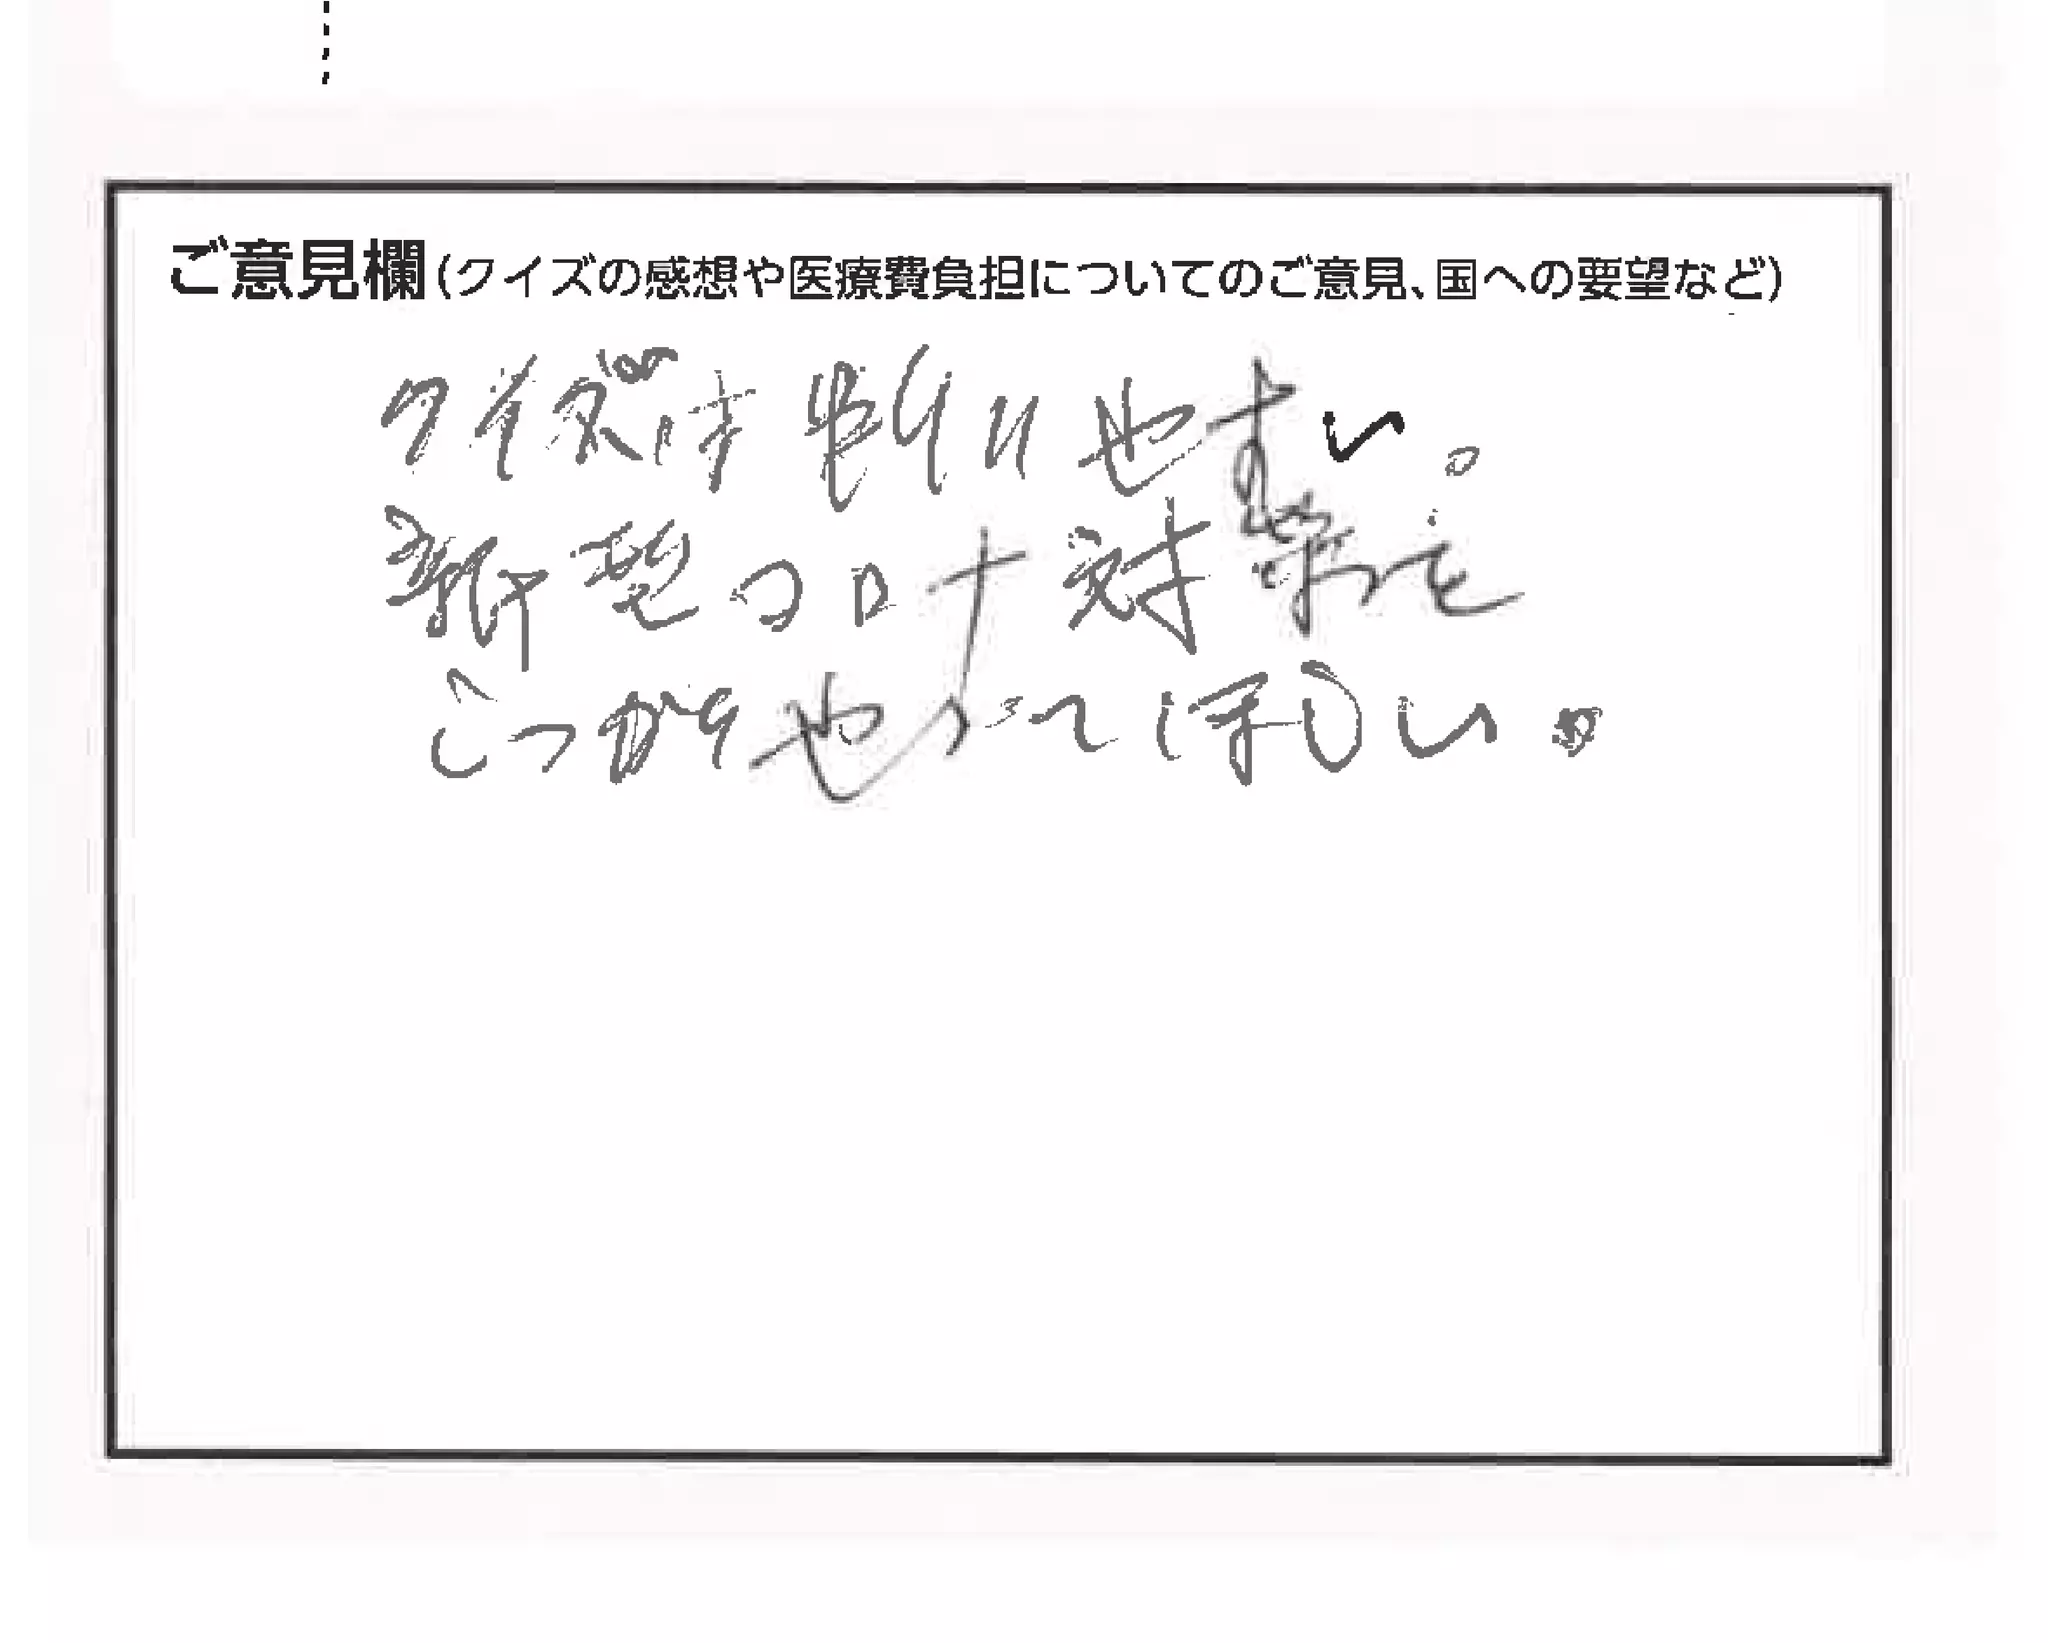 ご意見欄(クイズの感想や医療費負担についてのご意見、国への要望など)
クイズは判りやすい。
新型コロナ対策を
しっかりやってほしい。